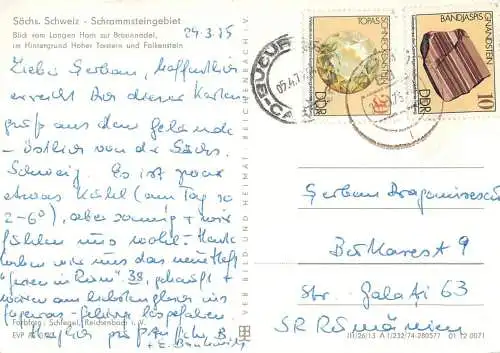 Sächs. Schweiz - Schrammsteingebiet
Blick vom Langen Horn zur Brosinnadel,
im Hintergrund Hoher Torstein und Falkenstein
24.3.75
Liebe Serban, Hoffentlich
erreicht Dich dieser Karten-
gruß aus dem Gelände
- östlich von der Sächs.
Schweiz. Es ist zwar
etwas kühl (am Tag so
2-6°), aber sonnig + wir
fühlen uns wohl. Heute
haben wir uns das neue Heft
38, gekauft +
wären am liebsten gleich ins
Herzlich grüßen
Farbfoto: Schlegel, Reichenbach i. V.
EVP
VEB BILD UND HEIMAT REICHENBACH i. V.
TOPAS
SCHNECKENSTEIN
DDR
20
BANDJASPIS
GNANDSTEIN
DDR
10
BUCUR
Serban Dragomirescu
Bukarest 9
Str. Galați 63
SR Rumänien
III/26/13 A 1/232/74-280577 01 12 0071